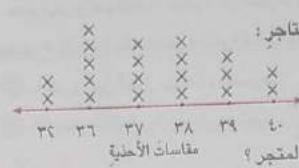 متاجر :
٣٢ ٣٦ ٣٧ ٣٨ ٣٩ ٤٠
مقاسات الأحذية
المتجر ؟